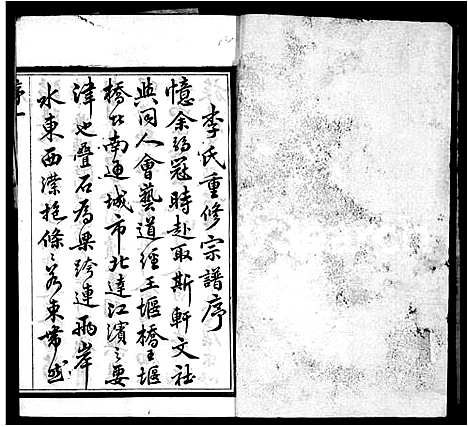 李氏重修宗譜序
憶余弱冠時赴取斯軒文社
與同人會藝道經王堰橋王堰
橋者南通城市北達江濱之要
津也疊石為梁跨連兩岸
水東西濚抱條之若東帶然
序一